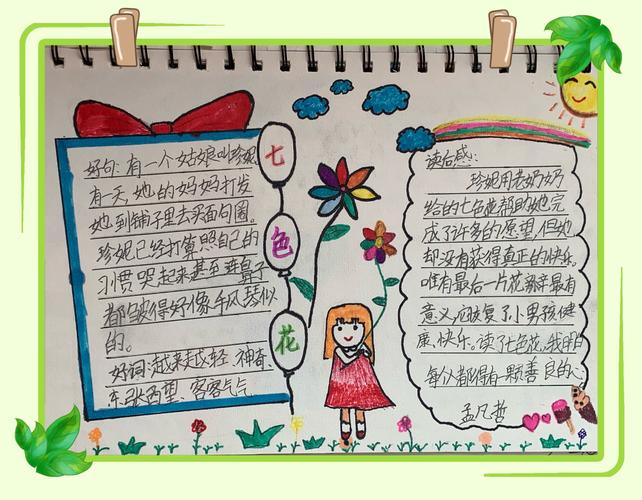 好句：有一个姑娘叫珍妮
有一天，她的妈妈打发
她到铺子里去买面包圈。
珍妮已经打算照自己的
习惯哭起来甚至连鼻子
都皱得好像手风琴似
的。
好词：越来越轻、神奇、
东张西望、客客气气
七
色
花
读后感：
珍妮用老奶奶
给的七色花帮助她完
成了许多的愿望，但她
却没有获得真正的快乐。
唯有最后一片花瓣最有
意义，恢复了小男孩健
康、快乐。读了七色花，我明白
每个人都得有一颗善良的心
孟凡哲